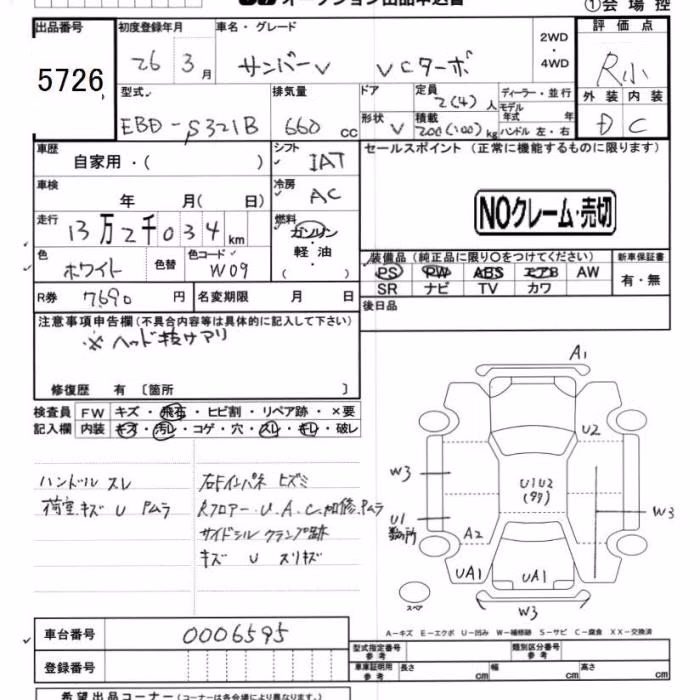 オークション出品申込書
①会場控
出品番号 初度登録年月 車名・グレード 2WD・4WD 評価点
5726 26 3月 サンバーV VCターボ R小
型式 排気量 ドア 定員 ディーラー・並行 外装 内装
EBD-S321B 660 cc 2(4)人 モデル年式 年 D C
形状 V 積載 200(100)kg ハンドル 左・右
車歴 自家用・( ) シフト IAT セールスポイント (正常に機能するものに限ります)
車検 年 月( 日) 冷房 AC
NOクレーム・売切
走行 13万2千034km 燃料 ガソリン・軽油・
色 ホワイト 色替 色コード W09
装備品 (純正品に限り○をつけてください) 新車保証書
PS PW ABS エアB AW 有・無
SR ナビ TV カワ
R券 7690円 名変期限 月 日
後日品
注意事項申告欄 (不具合内容等は具体的に記入して下さい)
※ヘッド抜ケアリ
修復歴 有 〔箇所 〕
検査員 FW キズ・飛石・ヒビ割・リペア跡・×要
記入欄 内装 キズ・汚レ・コゲ・穴・スレ・キレ・破レ
ハンドル スレ
荷室キズ U Pムラ
右Fインパネ ヒズミ
Rフロアー U.A.C.加修.Pムラ
サイドシル クランプ跡
キズ U スリキズ
A1
U2
W3
U1U2
(97)
W3
U1
数ヶ所
A2
UA1
UA1
W3
スペア
A-キズ E-エクボ U-凹み W-補修跡 S-サビ C-腐食 XX-交換済
車台番号 0006595
型式指定番号 参考 類別区分番号 参考
登録番号
車庫証明用 参考 長さ cm 幅 cm 高さ cm
希望出品コーナー (コーナーは各会場により異なります。)